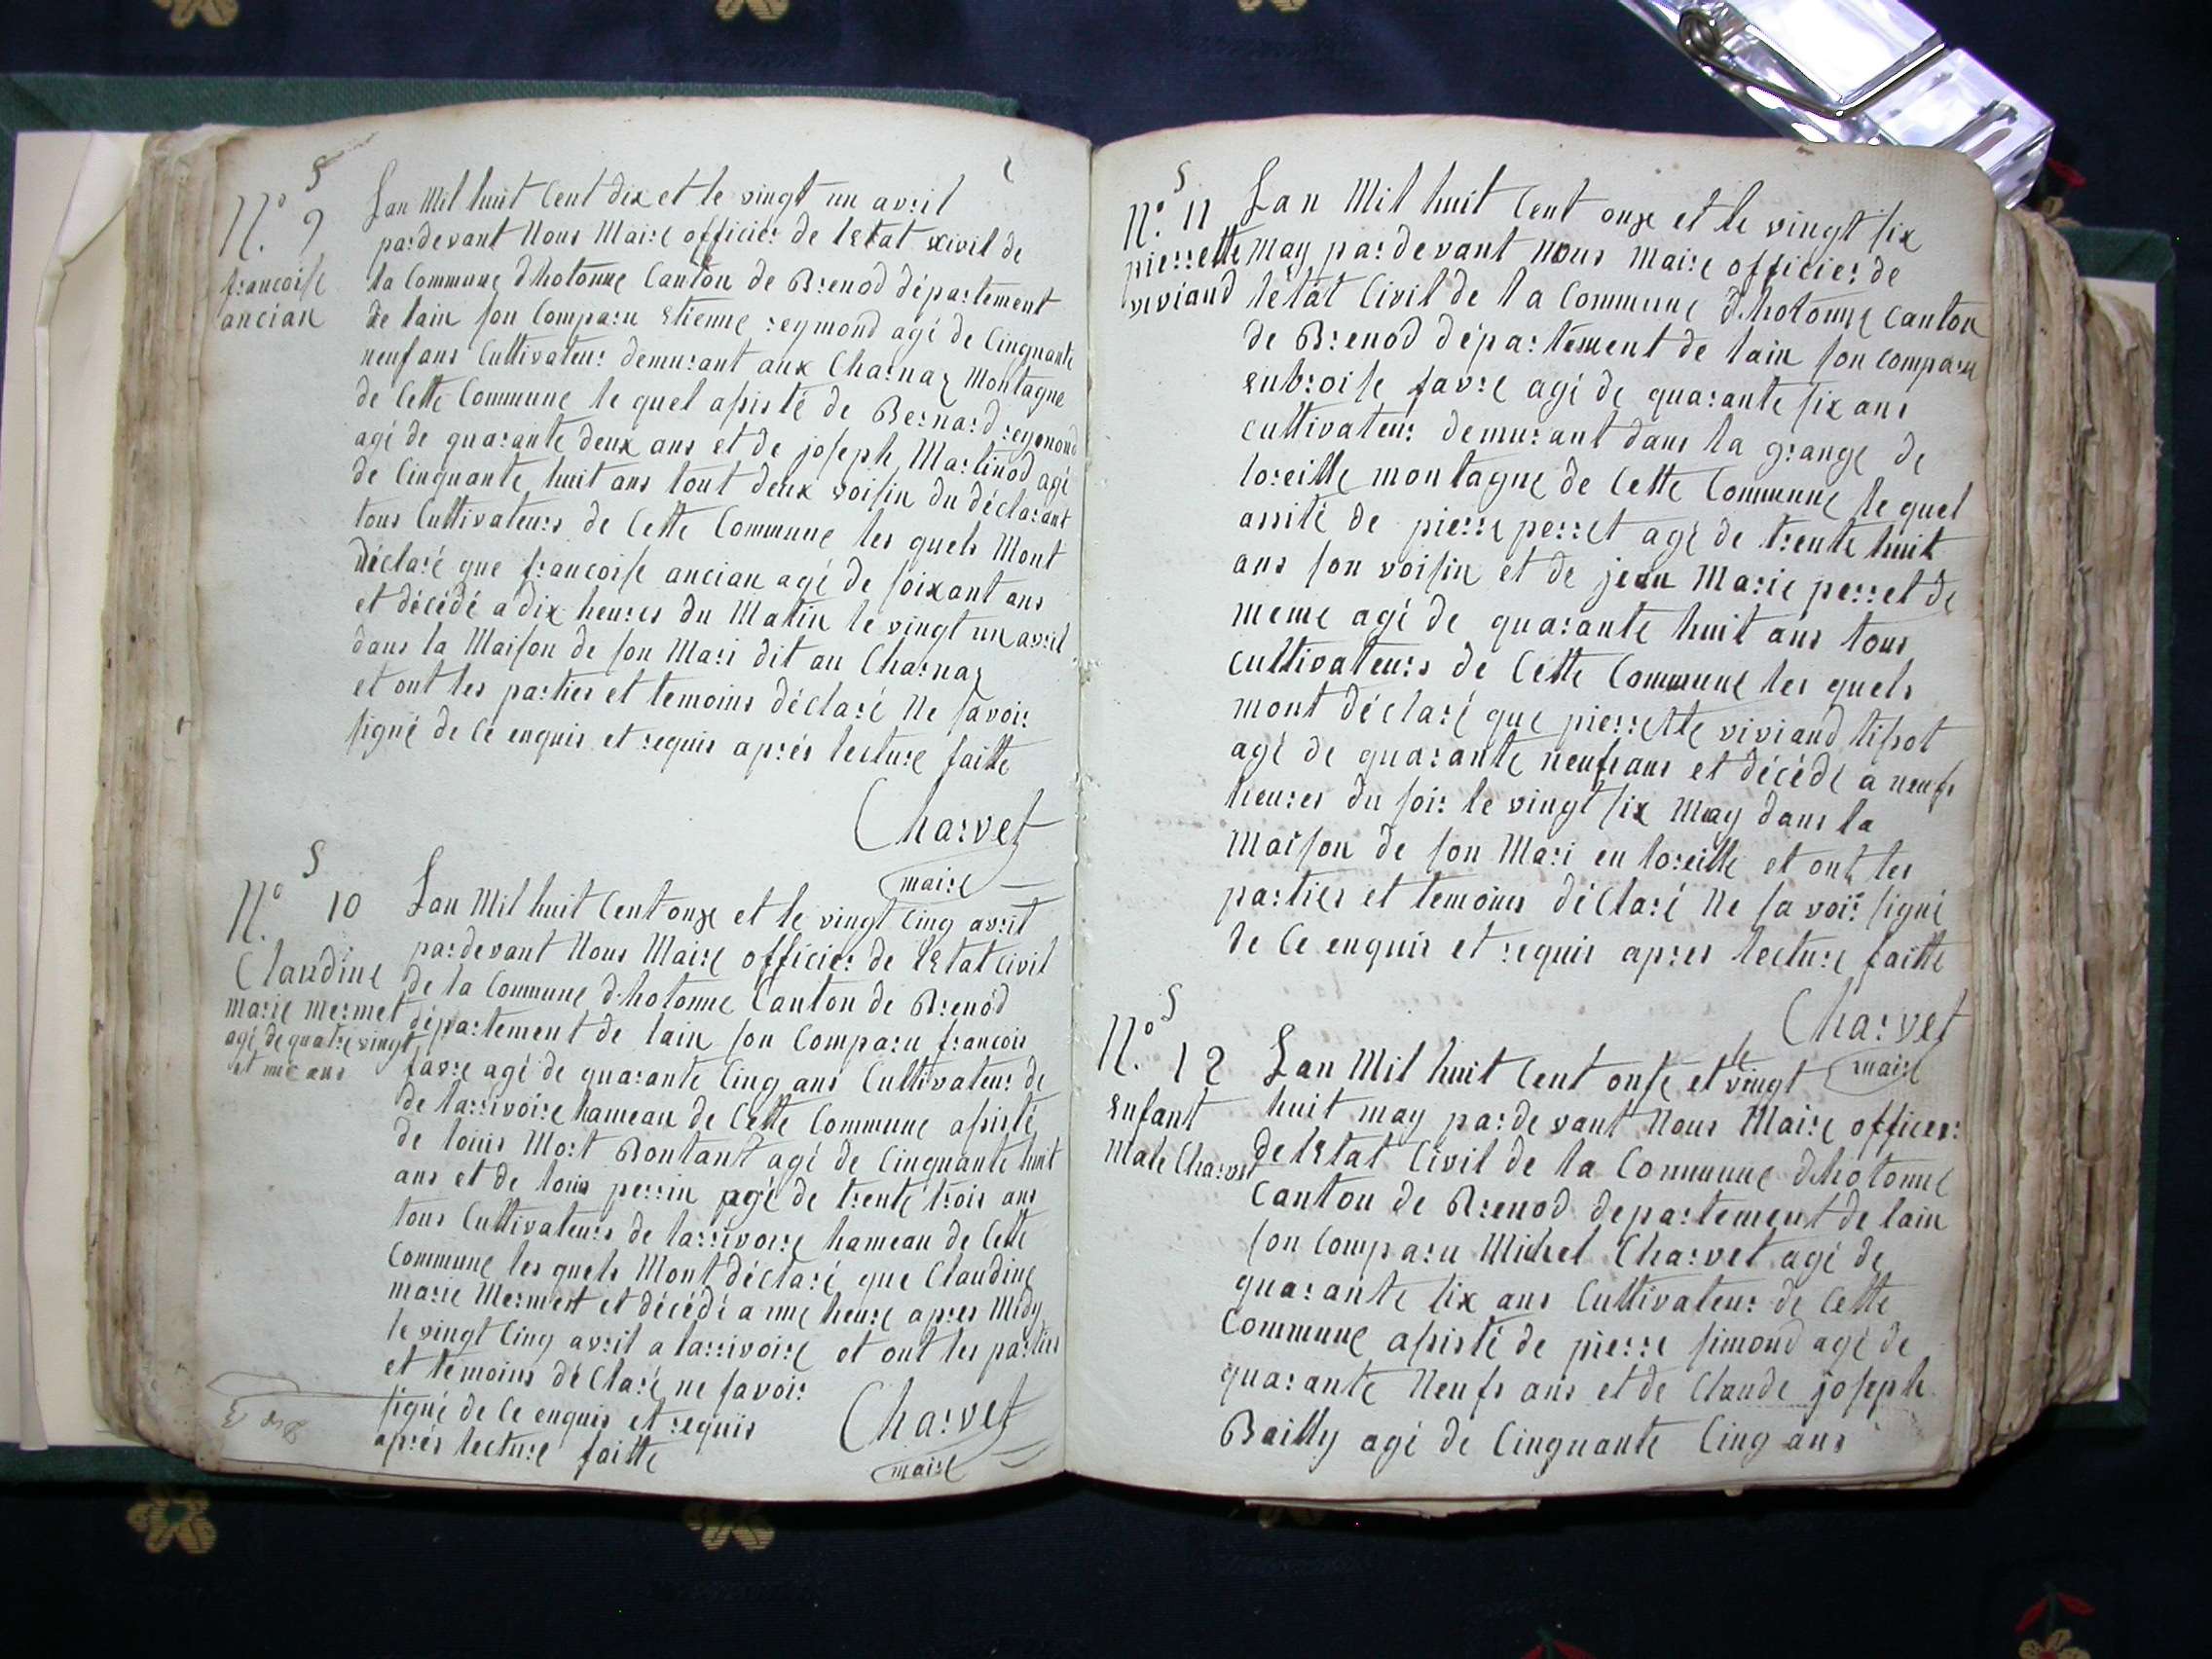 N.º 9
francoise
ancian
Lan Mil huit Cent dix et le vingt un avril
pardevant Nous Maire officier de letat civil de
la Commune dhotonne Canton de Brenod département
de lain son Comparu etienne reymond agé de Cinquante
neuf ans Cultivateur demurant aux Charnaz Montagne
de Cette Commune le quel asisté de Bernard reymond
agé de quarante deux ans et de joseph Martinod agé
de Cinquante huit ans tout deux voisin du déclarant
tous Cultivateurs de Cette Commune les quels Mont
déclaré que francoise ancian agé de soixant ans
et décédé a dix heures du Matin le vingt un avril
dans la Maison de son Mari dit au Charnaz
et ont les parties et temoins déclaré Ne savoir
signé de Ce enquis et requis aprés lecture faitte
Charvet
maire
N.º 10
Claudine
marie mermet
agé de quatre vingt
et une ans
Lan Mil huit Cent onze et le vingt Cinq avril
pardevant Nous Maire officier de letat Civil
de la Commune dhotonne Canton de Brenod
département de lain son Comparu francois
favre agé de quarante Cinq ans Cultivateur de
de larrivoire hameau de Cette Commune asisté
de louis Mort Bontant agé de Cinquante huit
ans et de louis perrin agé de trente trois ans
tous Cultivateurs de larrivoire hameau de Cette
Commune les quels Mont déclaré que Claudine
marie Mermest et décédé a une heure apres Midy
le vingt Cinq avril a larrivoire et ont les parties
et temoins déClaré ne savoir
signé de Ce enquis et requis
aprés lecture faitte
Charvet
maire
N.º 11
pierrette
viviand
Lan Mil huit Cent onze et le vingt six
may pardevant nous maire officier de
létat Civil de la Commune dhotonne Canton
de Brenod département de lain son comparu
enbroise favre agé de quarante six ans
cultivateur demurant dans la grange de
loreille montagne de Cette Commune le quel
assité de pierre perret agé de trente huit
ans son voisin et de jean Marie perret de
meme agé de quarante huit ans tous
cultivateurs de Cette Commune les quels
mont déclaré que pierrette viviand tissot
agé de quarante neufs ans et décédé a neufs
heures du soir le vingt six may dans la
Maison de son Mari en loreille et ont les
parties et temoins déClaré Ne savoir signé
de Ce enquis et requis apres lecture faitte
Charvet
maire
N.º 12
enfant
Male Charvet
Lan Mil huit Cent onse et le vingt
huit may pardevant Nous Maire officer
de letat Civil de la Commune dhotonne
Canton de Brenod departement de lain
son Comparu Michel Charvet agé de
quarante six ans Cultivateur de Cette
Commune asisté de pierre simond agé de
quarante Neufs ans et de Claude joseph
Bailly agé de Cinquante Cinq ans